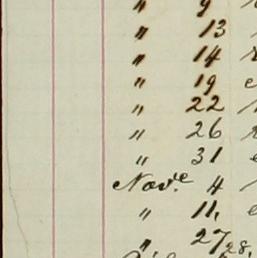 " 9
" 13
" 14
" 19
" 22
" 26
" 31
Nov.e 4
" 11,
" 27 28,